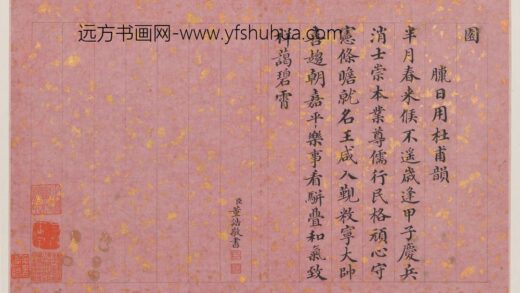 远方书画网-www.yfshuhua.com
圖
臘日用杜甫韻
半月春来候不遥歲逢甲子慶兵
消士崇本業尊儒行民格頑心守
憲條瞻就名王咸入覲敉寧大帥
喜趨朝嘉平樂事看駢疊和氣致
祥藹碧霄
臣董誥敬書